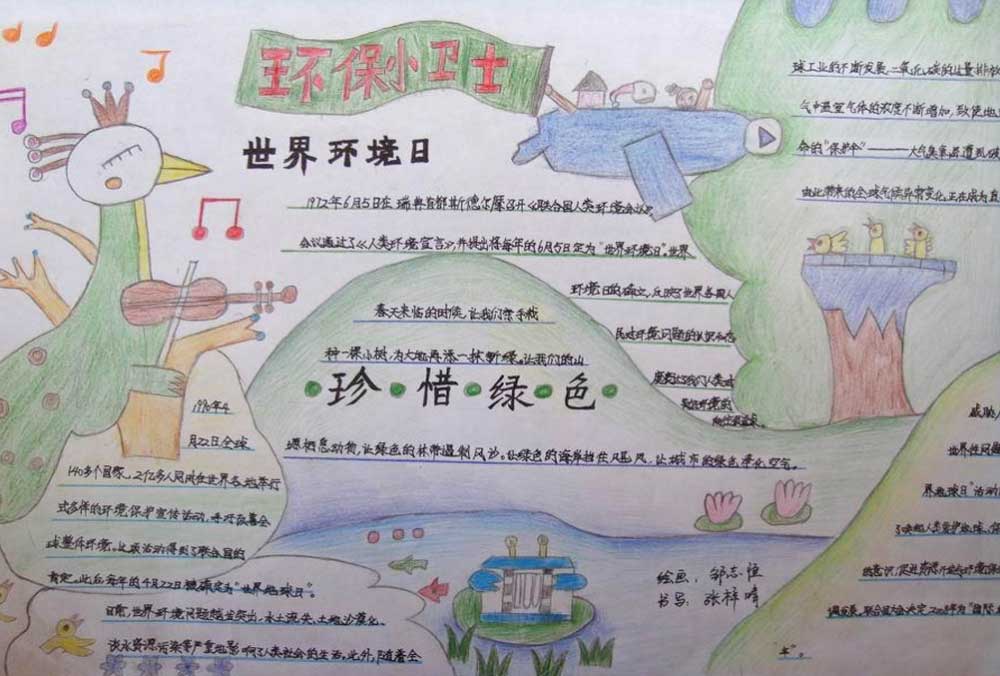 环保小卫士
世界环境日
1972年6月5日在瑞典首都斯德尔摩召开《联合国人类环境会议》
会议通过了《人类环境宣言》,并提出将每年的6月5日定为"世界环境日"。世界
环境日的确立,反映了世界各国人
民对环境问题的认识和态
度
春天来临的时候,让我们亲手栽
种一棵小树,为大地再添一抹新绿。让我们的山
珍·惜·绿·色
让绿色的林带遏制风沙。让绿色的海岸挡住风暴,让城市的绿色净化空气。
1990年4
月22日全球
140多个国家,2亿多人同时在世界各地举行
式多样的环境保护宣传活动,呼吁改善全
球整体环境。这项活动得到了联合国的
肯定。此后每年的4月22日被确定为"世界地球日"。
日前,世界环境问题越益突出,水土流失、土地沙漠化、
淡水资源污染等严重地影响了人类社会的生活。此外,随着全
球工业的不断发展,二氧化碳的过量排放
气中温室气体的浓度不断增加,致使地
命的"保护伞"————大气臭氧
由此带来的全球气候异常变化,正在成为直
世界性问题
界地球日"活动
识,促进资源开发与环境保
调发展,联合国大会决定2008年为"国际
年"。
绘画:邹志恒
书写:张梓晴